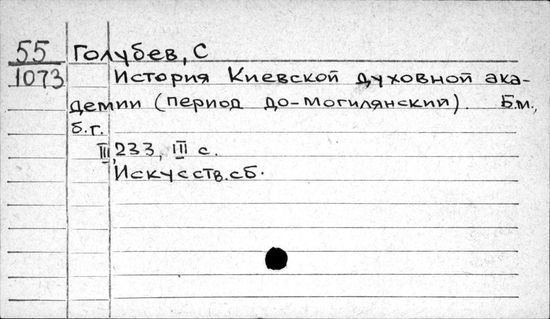 55 Голубев, С
1073 История Киевской духовной ака-
демии (период до-Могилянский). Б.м.,
б.г.
III, 233, III с.
Искусств.сб.